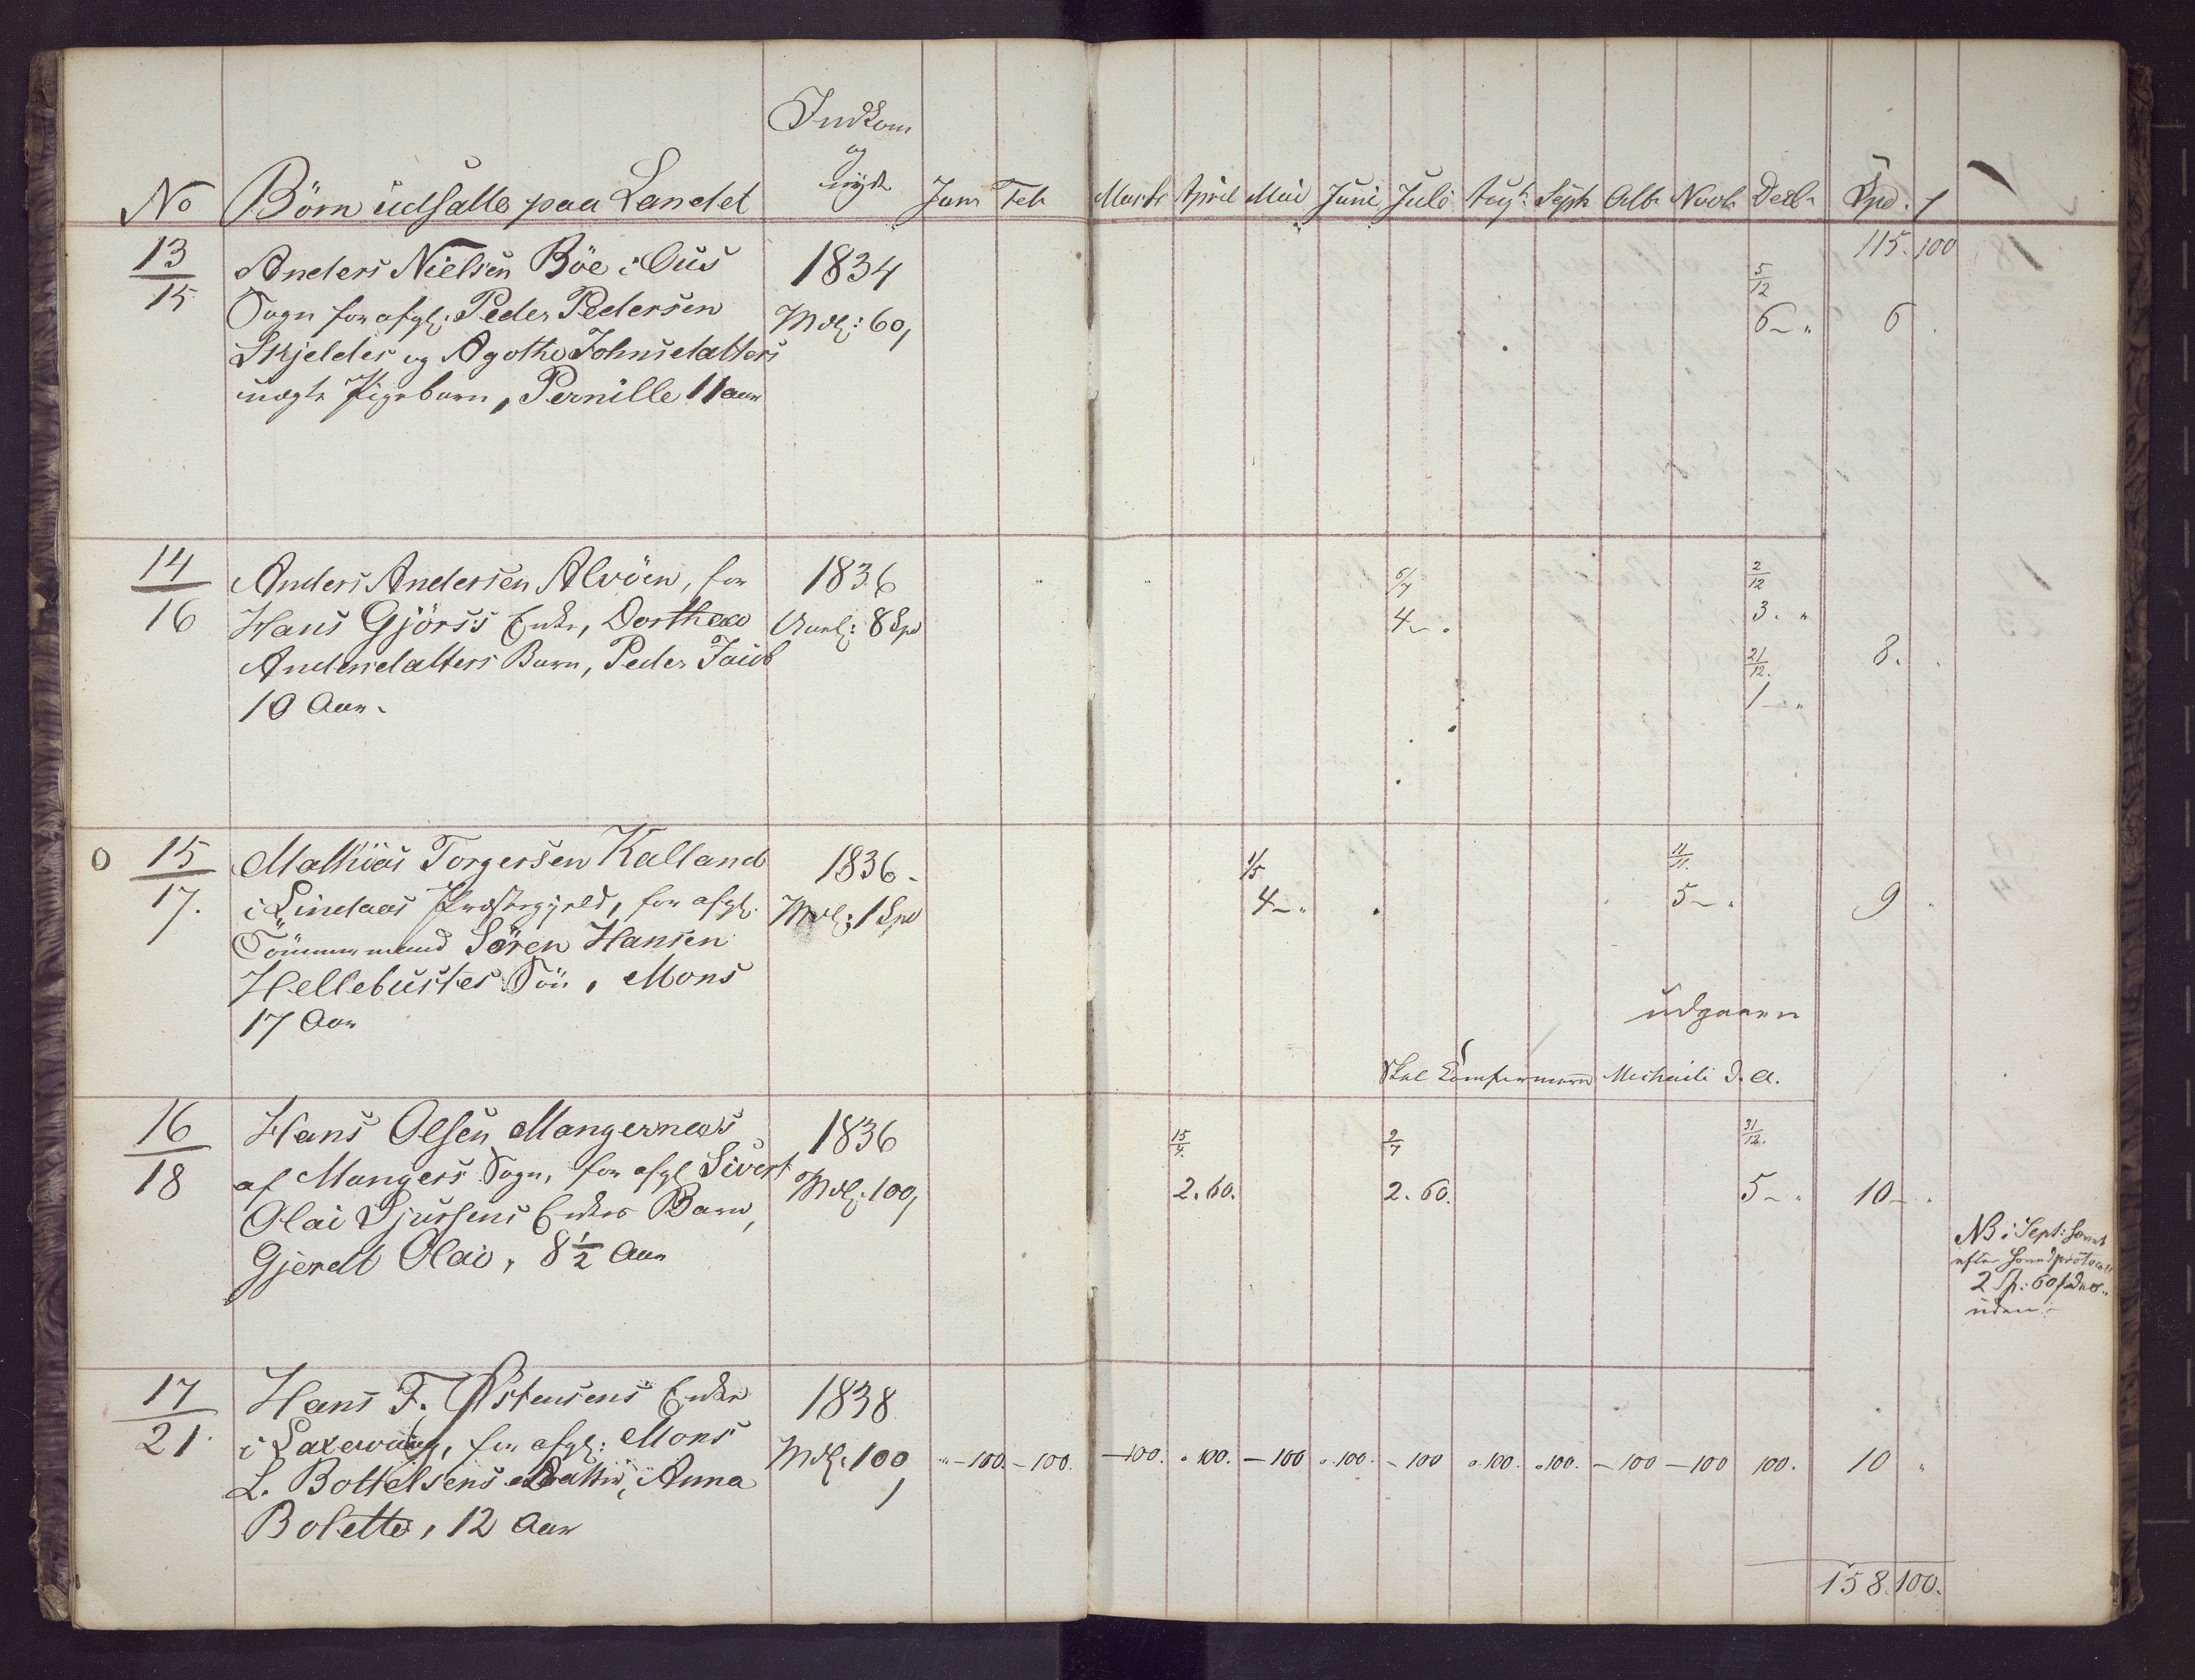 Indkom
og
nyde
No Börn udsatte paa Landet Janr Feb Marts April Mai Juni Juli Aug Septr Octb Novbr Decbr Spd. ſ
115. 100
13/15 Anders Nielsen Böe i Ous 1834 5/12
Sogn for afgl: Peder Pedersen Mdl: 60, 6 - " 6
Skjelder og Agothe Johnsdatters
uægte Pigebarn, Pernille 11 aar
14/16 Anders Andersen Alvöen, for 1836 6/7 2/12
Hans Gjörss Enke, Dorthea Aarl: 8 Spd 4 - . 3. "
Andersdatters Barn, Peder Jacob 21/12. 8.
10 Aar. 1 - "
0 15/17. Mathias Torgersen Kalland 1836. 1/5 11/11.
i Lindaas Præstegjeld, for afgl. Mdl: 1 Spd 4 - " 5 - . 9 "
Tömmermand Sören Hansen
Hellebustes Sön, Mons
17 Aar
udgaaen
Skal Confirmeres Michaeli d. A.
16/18 Hans Olsen Mangernæs 1836 15/4. 9/7 31/12.
af Mangers Sogn, for afgl Sivert Mdl: 100, 2. 60. 2. 60. 5 - " 10 - "
Olai Sjursens Enkes Barn,
Gjerdt Olai, 8 1/2 Aar
NB i Sept:
efter
2 Sp: 60
uden
17/21 Hans F. Östensens Enke 1838
i Laxevaag, for afgl: Mons Mdl: 100 " - 100. - 100. - 100. " 100. - 100 " 100. - 100 " 100. " 100. - 100 - 100 100. 10 "
L. Bottelsens Datter, Anna
Bolette, 12 Aar
158. 100.